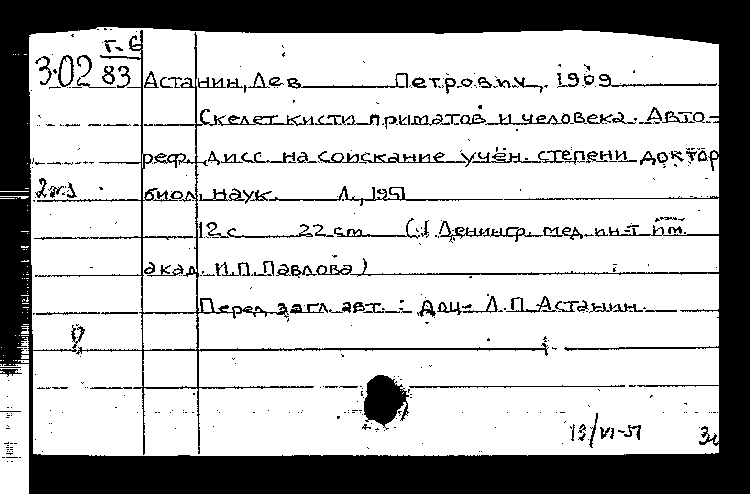 Г.6
3.02 83 Астанин, Лев Петрович, 1909
Скелет кисти приматов и человека. Авто-
реф. дисс. на соискание учён. степени доктор
2 экз биол. наук. Л., 1951
12 с 22 cm. (:I Ленингр. мед. ин-т им.
акад. И.П. Павлова)
Перед загл. авт.: Доц. Л.П. Астанин.
13/VI-51